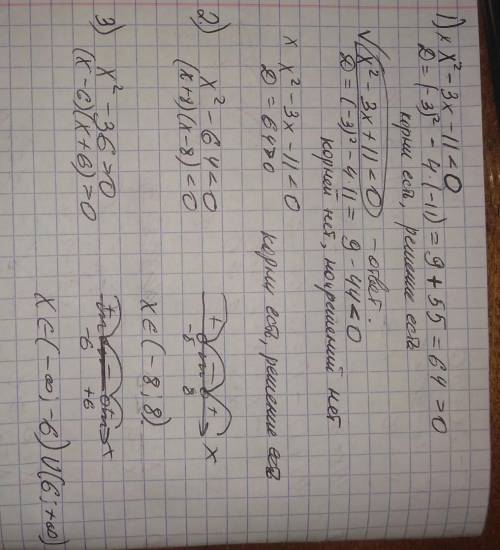 1) x x² - 3x - 11 < 0
D = (-3)² - 4·(-11) = 9 + 55 = 64 > 0
корни есть, решение есть
√ x² - 3x + 11 < 0 - ответ.
D = (-3)² - 4·11 = 9 - 44 < 0
корней нет, решений нет
x x² - 3x - 11 < 0
D = 64 > 0 корни есть, решение есть
2) x² - 64 < 0
(x+8)(x-8) < 0
+ - +
-8 8 x
x ∈ (-8; 8)
3) x² - 36 > 0
(x-6)(x+6) > 0
+ - + x
-6 +6
x ∈ (-∞; -6) ∪ (6; +∞)